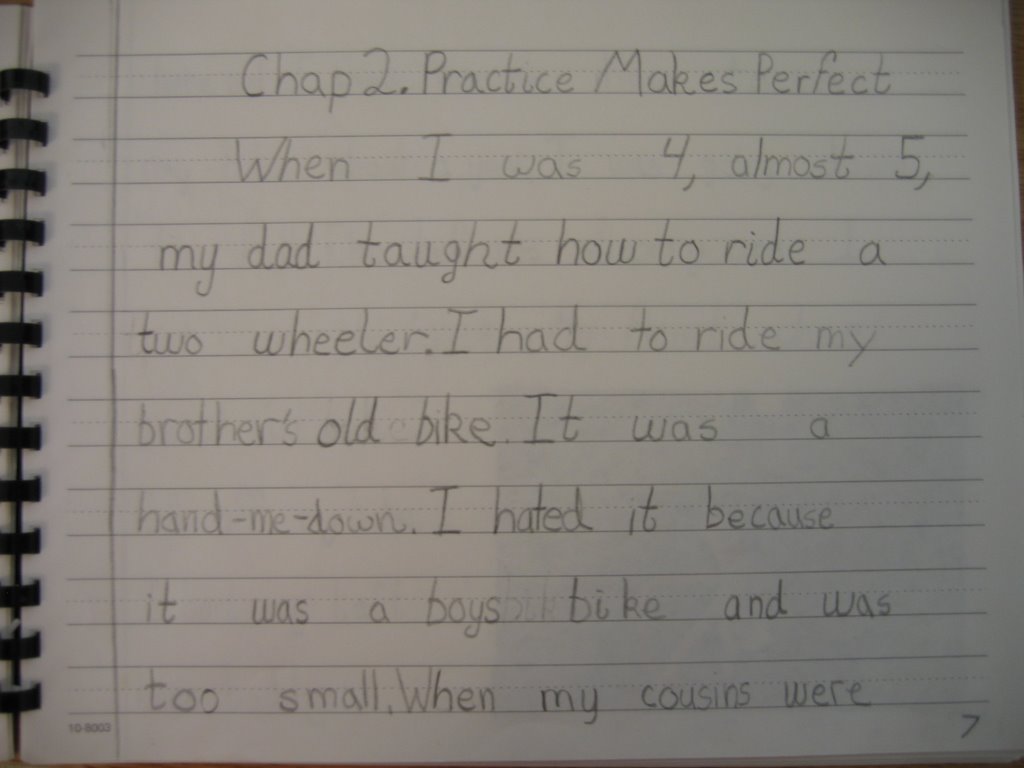 Chap 2. Practice Makes Perfect
When I was 4, almost 5,
my dad taught how to ride a
two wheeler. I had to ride my
brother's old bike. It was a
hand-me-down. I hated it because
it was a boys bike and was
too small. When my cousins were
10-8003
7